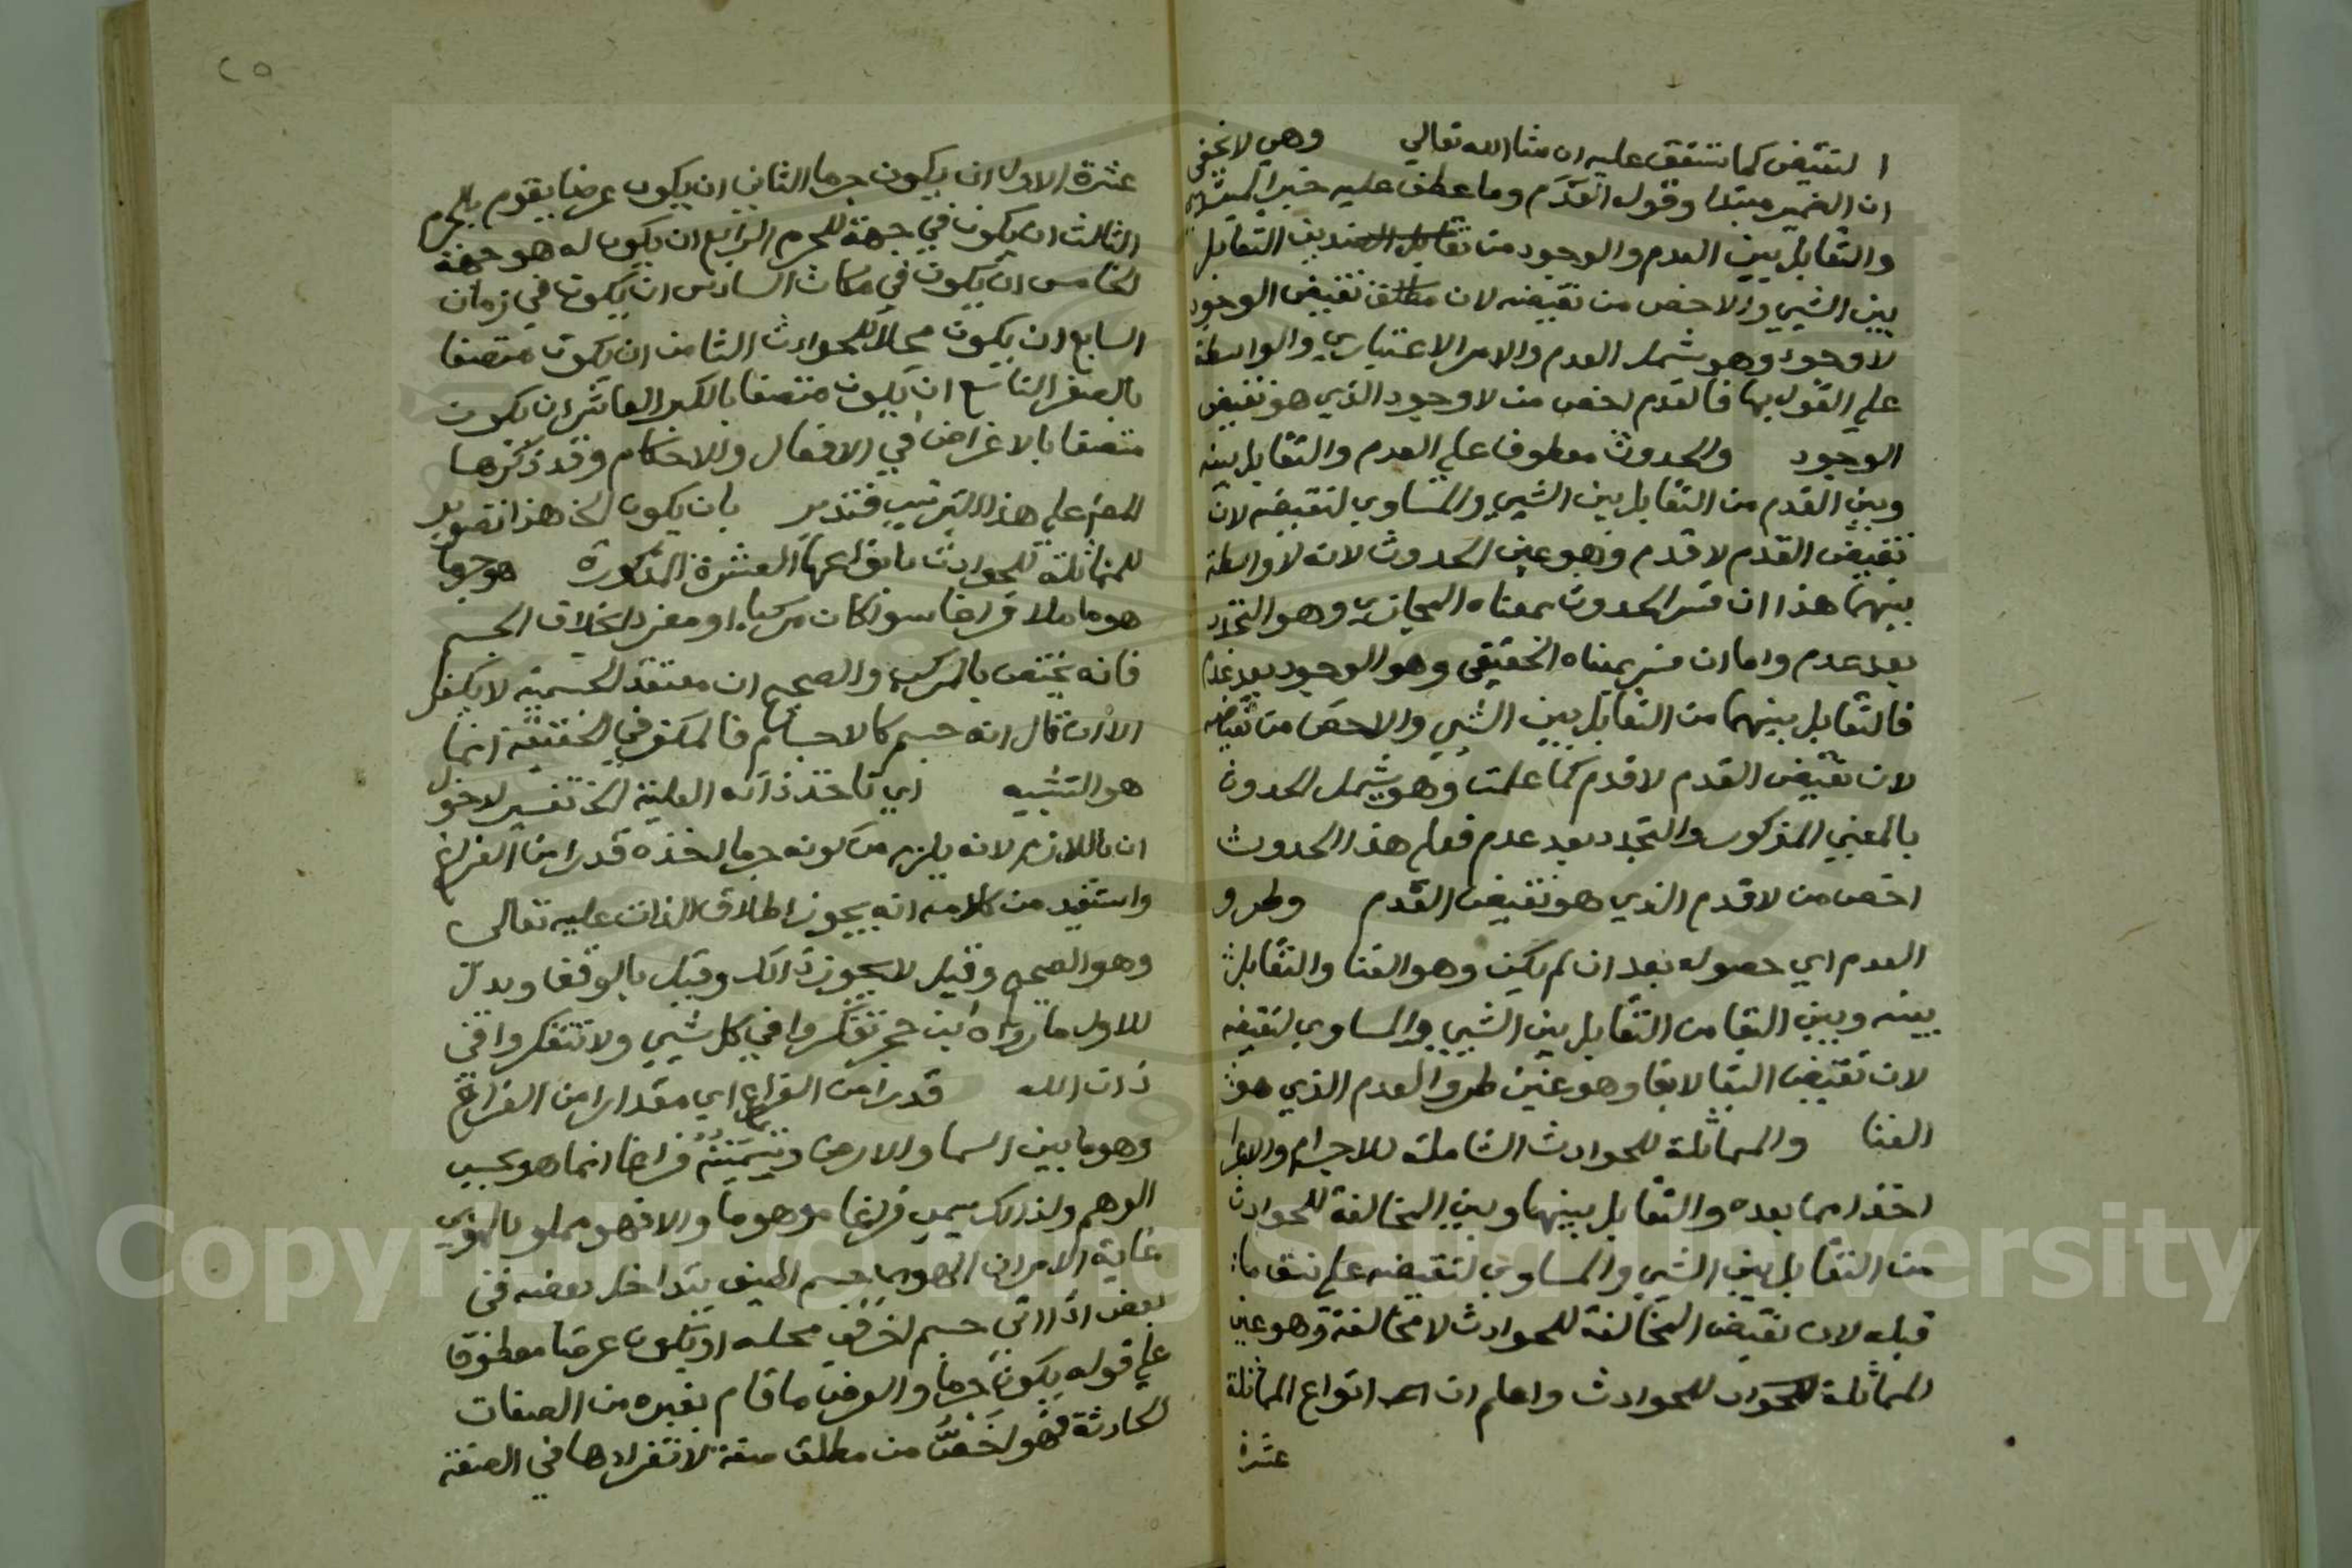 النقيض كما ستقف عليه ان شا الله تعالي وهي لا يخفي
ان الضمير مبتدا وقوله العدم وما عطف عليه خبر
والتقابل بين العدم والوجود من تقابل الضدين التقابل
بين الشيي والاخص من نقيضه لان مطلق نقيض الوجود
لا وجود وهو شمل العدم والامر الاعتباري والواسطة
علي القول بها فالعدم اخص من لا وجود الذي هو نقيض
الوجود والحدوث معطوف علي العدم والتقابل بينه
وبين القدم من التقابل بين الشيي والمساوي لنقيضه لان
نقيض القدم لا قدم وهو عين الحدوث لانه لا واسطة
بينهما هذا ان فسر الحدوث بمعناه المجازي وهو التجدد
بعد عدم واما ان فسر بمعناه الحقيقي وهو الوجود بعد عدم
فالتقابل بينهما من التقابل بين الشيي والاخص من نقيضه
لان نقيض القدم لا قدم كما علمت وهو يشمل الحدوث
بالمعني المذكور والتجدد بعد عدم فعلم هذا الحدوث
اخص من لا قدم الذي هو نقيض القدم وطرو
العدم اي حصوله بعد ان لم يكن وهو الفنا والتقابل
بينه وبين البقا من التقابل بين الشيي والمساوي لنقيضه
لان نقيض البقا لا بقا وهو عين طرو العدم الذي هو
الفنا والمماثلة للحوادث الشاملة للاجرام والاعرا
اخذا مما بعده والتقابل بينها وبين المخالفة للحوادث
من التقابل بين الشيي والمساوي لنقيضه علي نسق ما
قبله لان نقيض المخالفة للحوادث لا مخالفة وهو عين
المماثلة للحوادث واعلم ان انواع المماثلة
عشرة
٢٥
عشرة الاول ان يكون جرما الثاني ان يكون عرضا يقوم بالجرم
الثالث ان يكون في جهة للجرم الرابع ان يكون له هو جهة
الخامس ان يكون في مكان السادس ان يكون في زمان
السابع ان يكون محلا للحوادث الثامن ان يكون متصفا
بالصغر التاسع ان يكون متصفا بالكبر العاشر ان يكون
متصفا بالاغراض في الافعال والاحكام وقد ذكرها
المص علي هذا الترتيب فتدبر بان يكون الخ هذا تصوير
للمماثلة للحوادث بانواعها العشرة المذكورة جرما
هو ما ملا فراغا سوا كان مركبا او مفردا بخلاف الجسم
فانه يختص بالمركب والصحيح ان معتقد الجسمية لا يكفر
الا ان قال انه جسم كالاجسام فالمكفر في الحقيقة انما
هو التشبيه اي تاخذ ذاته العلية الخ تفسير لدخول
ان باللازم لانه يلزم من كونه جرما اخذه قدرا من الفراغ
واستفيد من كلامه انه يجوز اطلاق الذات عليه تعالي
وهو الصحيح وقيل لا يجوز ذالك وقيل بالوقف ويدل
للاول ما رواه ابن حجر تفكروا في كل شيي ولا تتفكروا في
ذات الله قدرا من الفراغ اي مقدارا من الفراغ
وهو ما بين السما والارض وتسميته فراغا انما هو بحسب
الوهم ولذالك سمي فراغا موهوما والا فهو مملو بالهوي
غاية الامر ان الهوي جسم لطيف يتداخل بعضه في
بعض اذا اتي جسم اخر في محله او يكون عرضا معطوف
علي قوله يكون جرما والعرض ما قام بغيره من الصفات
الحادثة فهو اخص من مطلق صفة لانفرادها في الصفة